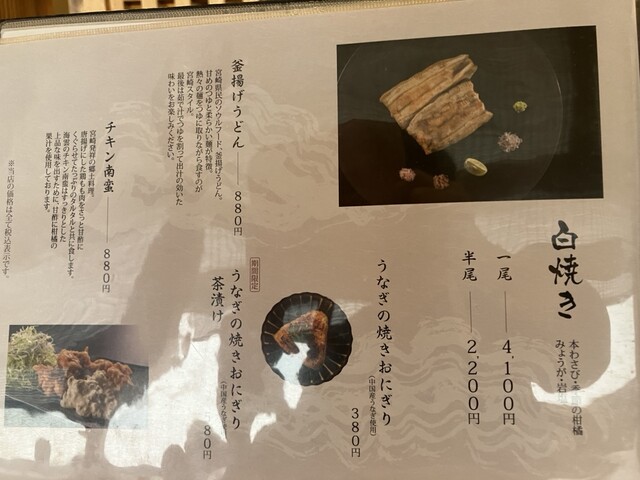 白焼き
本わさび
の柑橘
みょうが・岩
一尾 4,100円
半尾 2,200円
うなぎの焼きおにぎり
(中国産うなぎ使用)
380円
期間限定
うなぎの焼きおにぎり
茶漬け
(中国産うなぎ
80円
釜揚げうどん 880円
宮崎県民のソウルフード、釜揚げうどん。
甘めのつゆと柔らかい麺が特徴。
熱々の麺をつゆに取りながら食すのが
宮崎スタイル。
最後は茹で汁でつゆを割って出汁の効いた
味わいをお楽しみください。
チキン南蛮 880円
宮崎発祥の郷土料理。
唐揚げにした鶏もも肉をさっと甘酢に
くぐらせてたっぷりのタルタルと共に食します。
海雲のチキン南蛮はすっきりとした
上品な味を出すために、甘酢に柑橘の
果汁を使用しております。
※当店の価格は全て税込表示です。